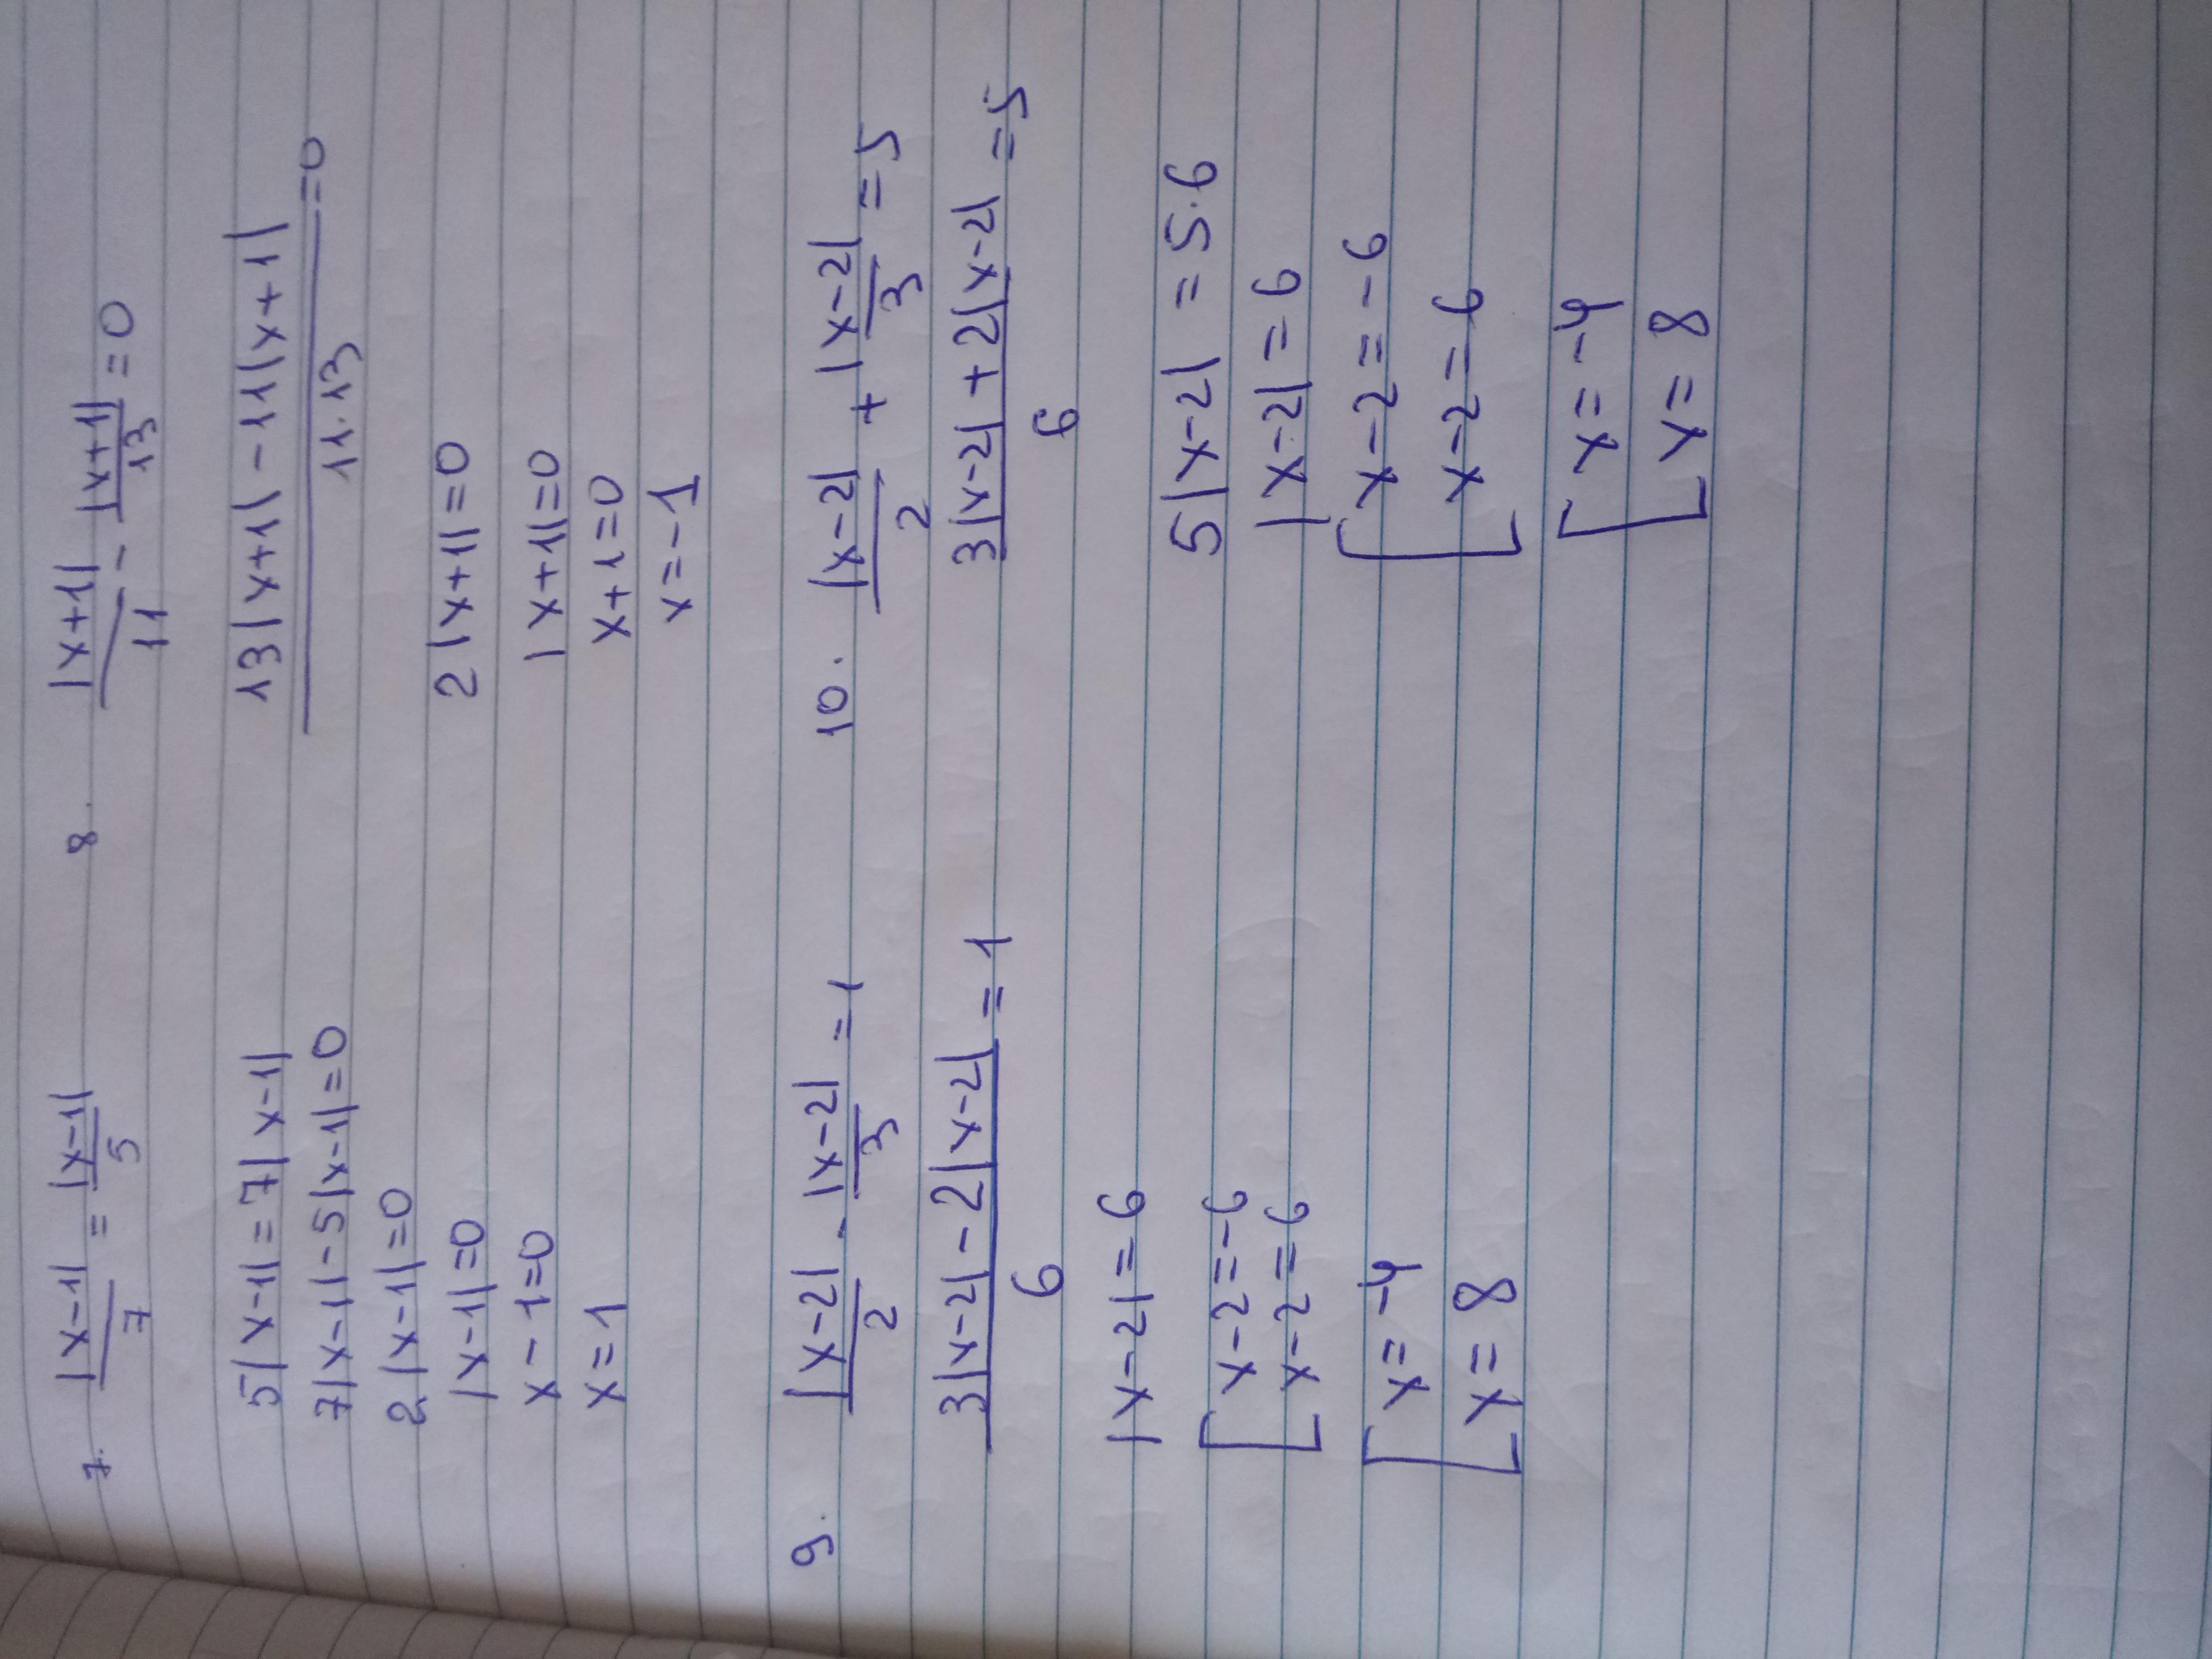 7. |x-1|/7 = |x-1|/5
5|x-1| = 7|x-1|
7|x-1| - 5|x-1| = 0
2|x-1| = 0
|x-1| = 0
x-1=0
x=1
8. |x+1|/11 - |x+1|/13 = 0
13|x+1| - 11|x+1|/11·13 = 0
2|x+1| = 0
|x+1| = 0
x+1=0
x=-1
9. |x-2|/2 - |x-2|/3 = 1
3|x-2| - 2|x-2|/6 = 1
|x-2| = 6
[x-2=-6
x-2=6
[x=-4
x=8
10. |x-2|/2 + |x-2|/3 = 5
3|x-2| + 2|x-2|/6 = 5
5|x-2| = 5·6
|x-2| = 6
[x-2=-6
x-2=6
[x=-4
x=8